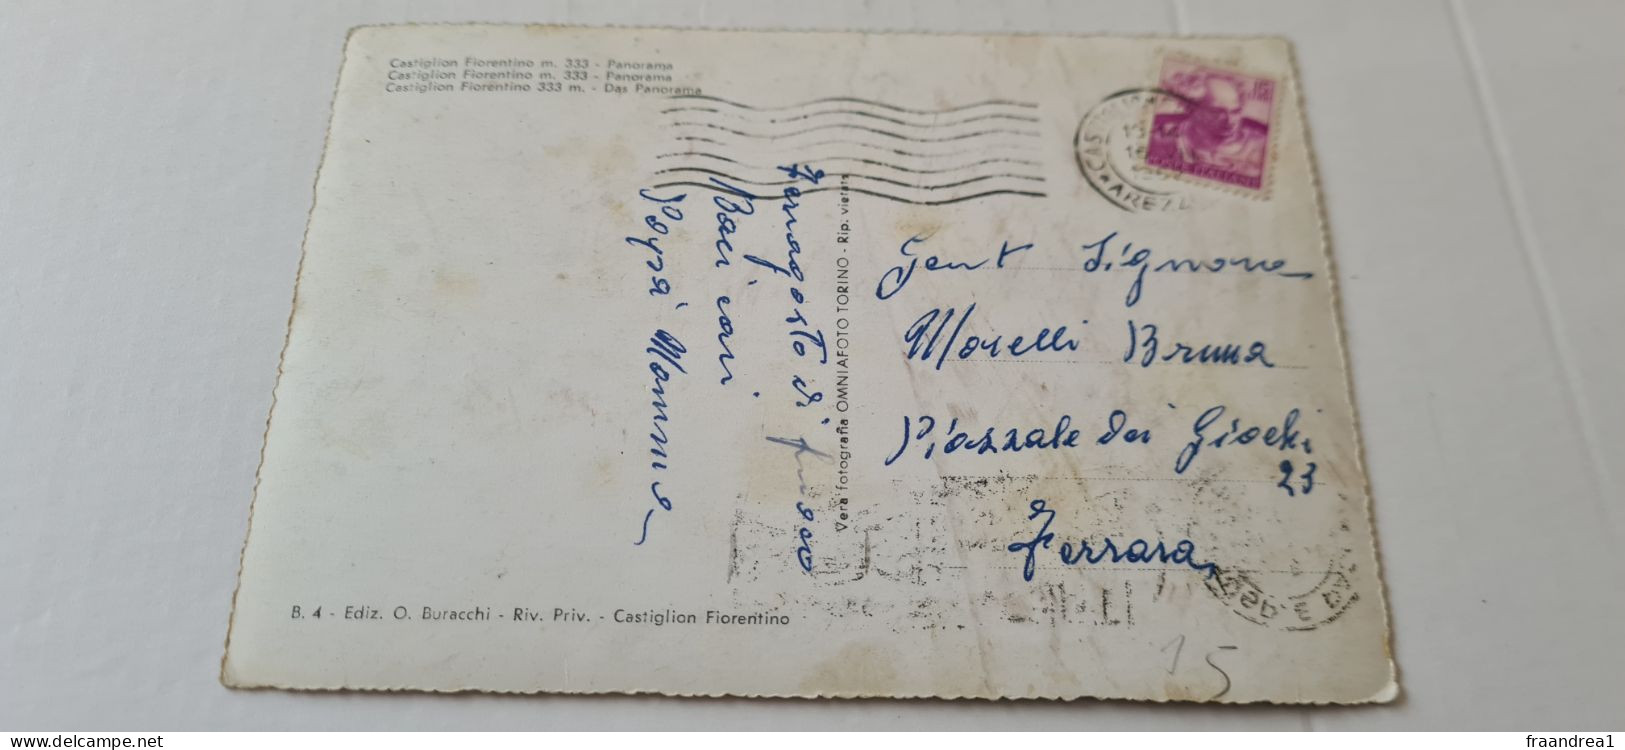 Castiglion Fiorentino m. 333 - Panorama
Castiglion Fiorentino m. 333 - Panorama
Castiglion Fiorentino 333 m. - Das Panorama
POSTE ITALIANE
AREZZO
Ferragosto di fuoco
Baci cari
Mamma
Vera fotografia OMNIAFOTO TORINO - Rip. vietata
Gent Signora
Morelli Bruna
Piazzale dei Giochi
23
Ferrara
B. 4 - Ediz. O. Buracchi - Riv. Priv. - Castiglion Fiorentino
15
www.delcampe.net
fraandrea1